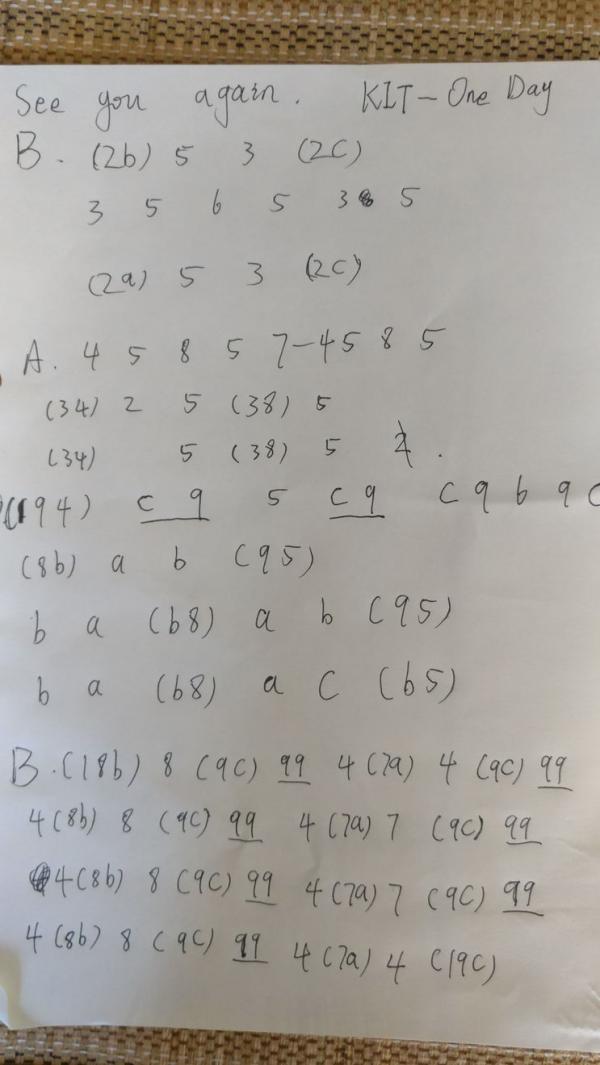 See you again. KIT-One Day
B. (2b) 5 3 (2C)
3 5 6 5 3 5
(2a) 5 3 (2C)
A. 4 5 8 5 7-45 8 5
(34) 2 5 (38) 5
(34) 5 (38) 5
(194) c 9 5 c 9 c 9 b 9 c
(8b) a b (95)
b a (b8) a b (95)
b a (b8) a C (b5)
B.(18b) 8 (9C) 99 4(7a) 4 (9C) 99
4(8b) 8 (9C) 99 4(7a) 7 (9C) 99
4(8b) 8 (9C) 99 4(7a) 7 (9C) 99
4(8b) 8 (9C) 99 4(7a) 4 (19C)